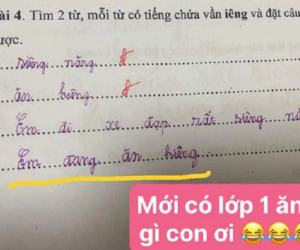 ài 4. Tìm 2 từ, mỗi từ có tiếng chứa vần iêng và đặt câu
ược.
siêng năng
ăn kiêng
Em đi xe đạp rất siêng năn
Em đang ăn kiêng
Mới có lớp 1 ăn
gì con ơi 😂😂😂